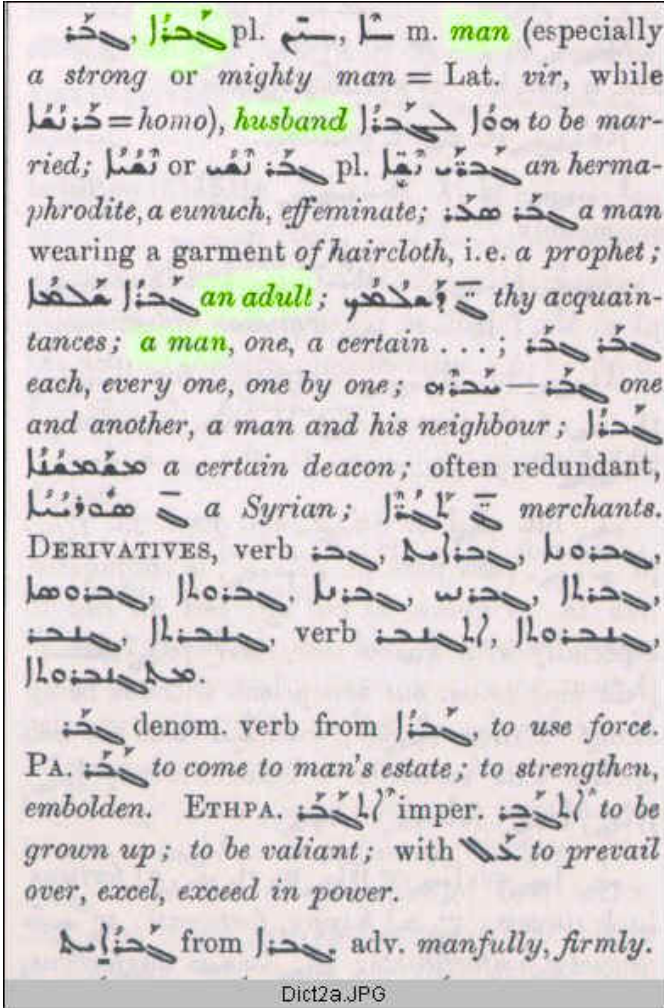 ܓܒܰܪ, ܓܰܒܪܳܐ pl. m. man (especially
a strong or mighty man = Lat. vir, while
ܒܰܪܢܳܫܳܐ = homo), husband ܗܘܳܐ ܠܓܰܒܪܳܐ to be mar-
ried; or pl. an herma-
phrodite, a eunuch, effeminate; a man
wearing a garment of haircloth, i.e. a prophet;
ܓܰܒܪܳܐ an adult; thy acquain-
tances; a man, one, a certain . . . ; ܓܒܰܪ ܓܒܰܪ
each, every one, one by one; ܓܒܰܪ — ܚܰܒܪܶܗ one
and another, a man and his neighbour; ܓܰܒܪܳܐ
ܡܫܰܡܫܳܢܳܐ a certain deacon; often redundant,
ܣܘܪܝܳܝܳܐ a Syrian; merchants.
DERIVATIVES, verb ܓܒܪ, ܓܒܪܐܝܬ, ܓܒܪܘܢܐ,
ܓܒܪܬܐ, ܓܒܪܢܝ, ܓܒܪܢܐ, ܓܒܪܘܬܐ, ܓܒܪܘܣܐ,
ܓܢܒܪ, ܓܢܒܪܬܐ, verb ܐܬܓܢܒܪ, ܓܢܒܪܘܬܐ,
ܡܬܓܢܒܪܘܬܐ.
ܓܒܰܪ denom. verb from ܓܰܒܪܳܐ, to use force.
PA. ܓܰܒܰܪ to come to man's estate; to strengthen,
embolden. ETHPA. ܐܬܓܰܒܰܪ imper. ܐܬܓܰܒܪ to be
grown up; to be valiant; with ܥܰܠ to prevail
over, excel, exceed in power.
ܓܰܒܪܳܐܝܬ from ܓܒܪܐ. adv. manfully, firmly.
Dict2a.JPG